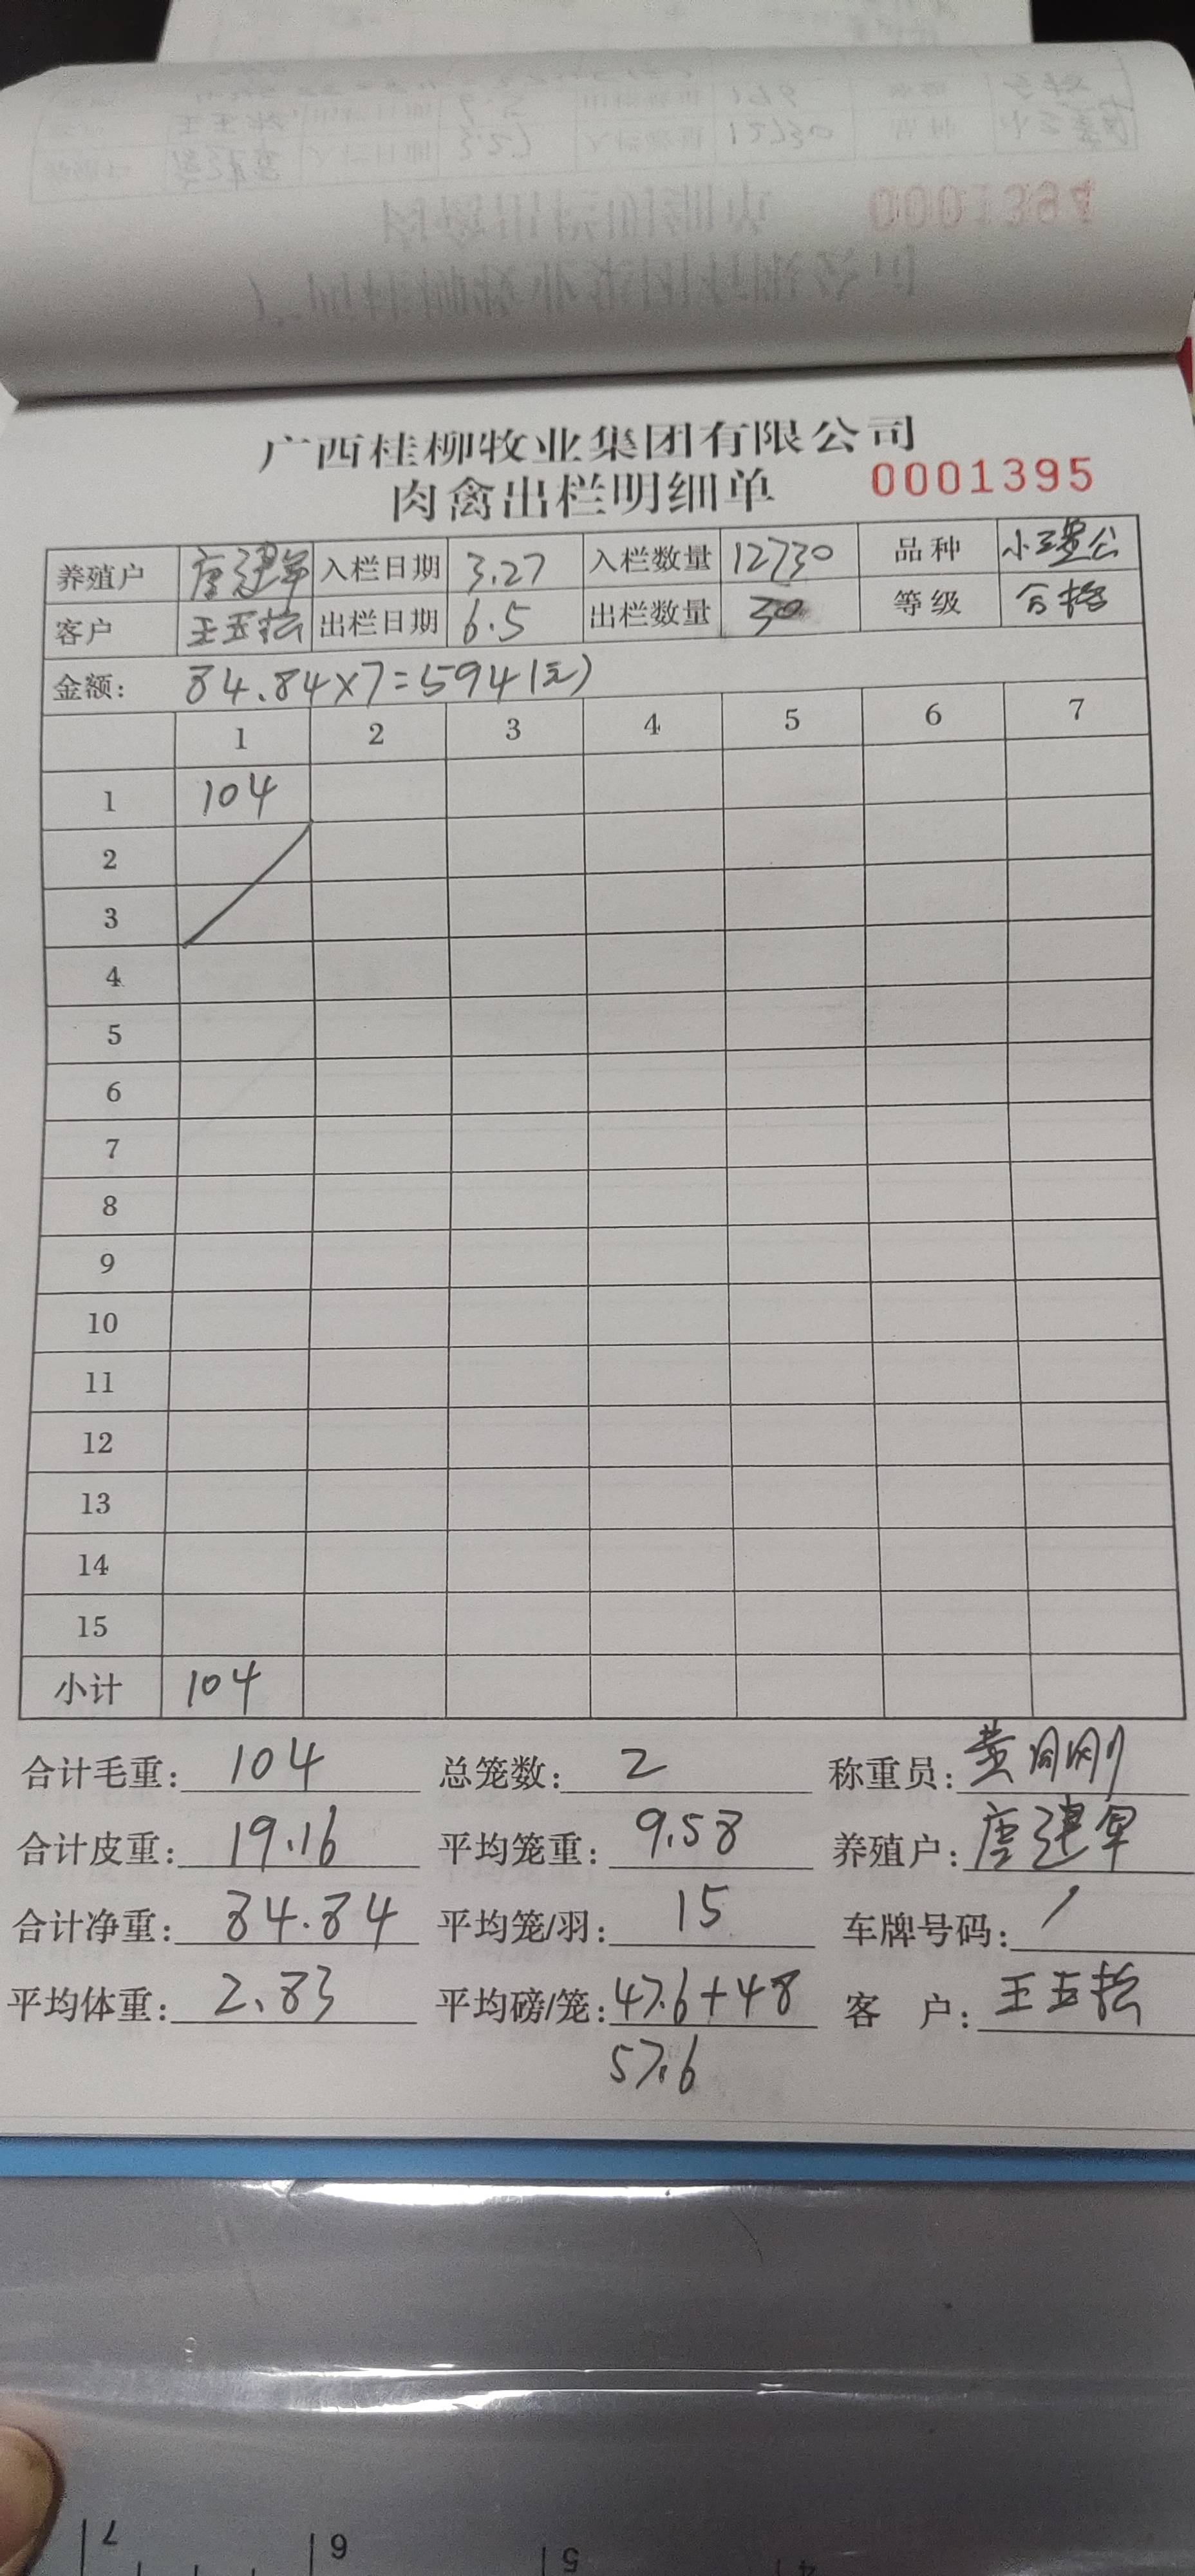 广西桂柳牧业集团有限公司
肉禽出栏明细单 0001395
养殖户 唐建军 入栏日期 3.27 入栏数量 12730 品种 公
客户 王 出栏日期 6.5 出栏数量 30 等级 合格
金额: 84.84×7=594(元)
1 2 3 4 5 6 7
1 104
2
3
4
5
6
7
8
9
10
11
12
13
14
15
小计 104
合计毛重: 104 总笼数: 2 称重员: 黄刚
合计皮重: 19.16 平均笼重: 9.58 养殖户: 唐建军
合计净重: 84.84 平均笼/羽: 15 车牌号码: /
平均体重: 2.83 平均磅/笼: 47.6+48 客 户: 王
57.6
7 6 5 4